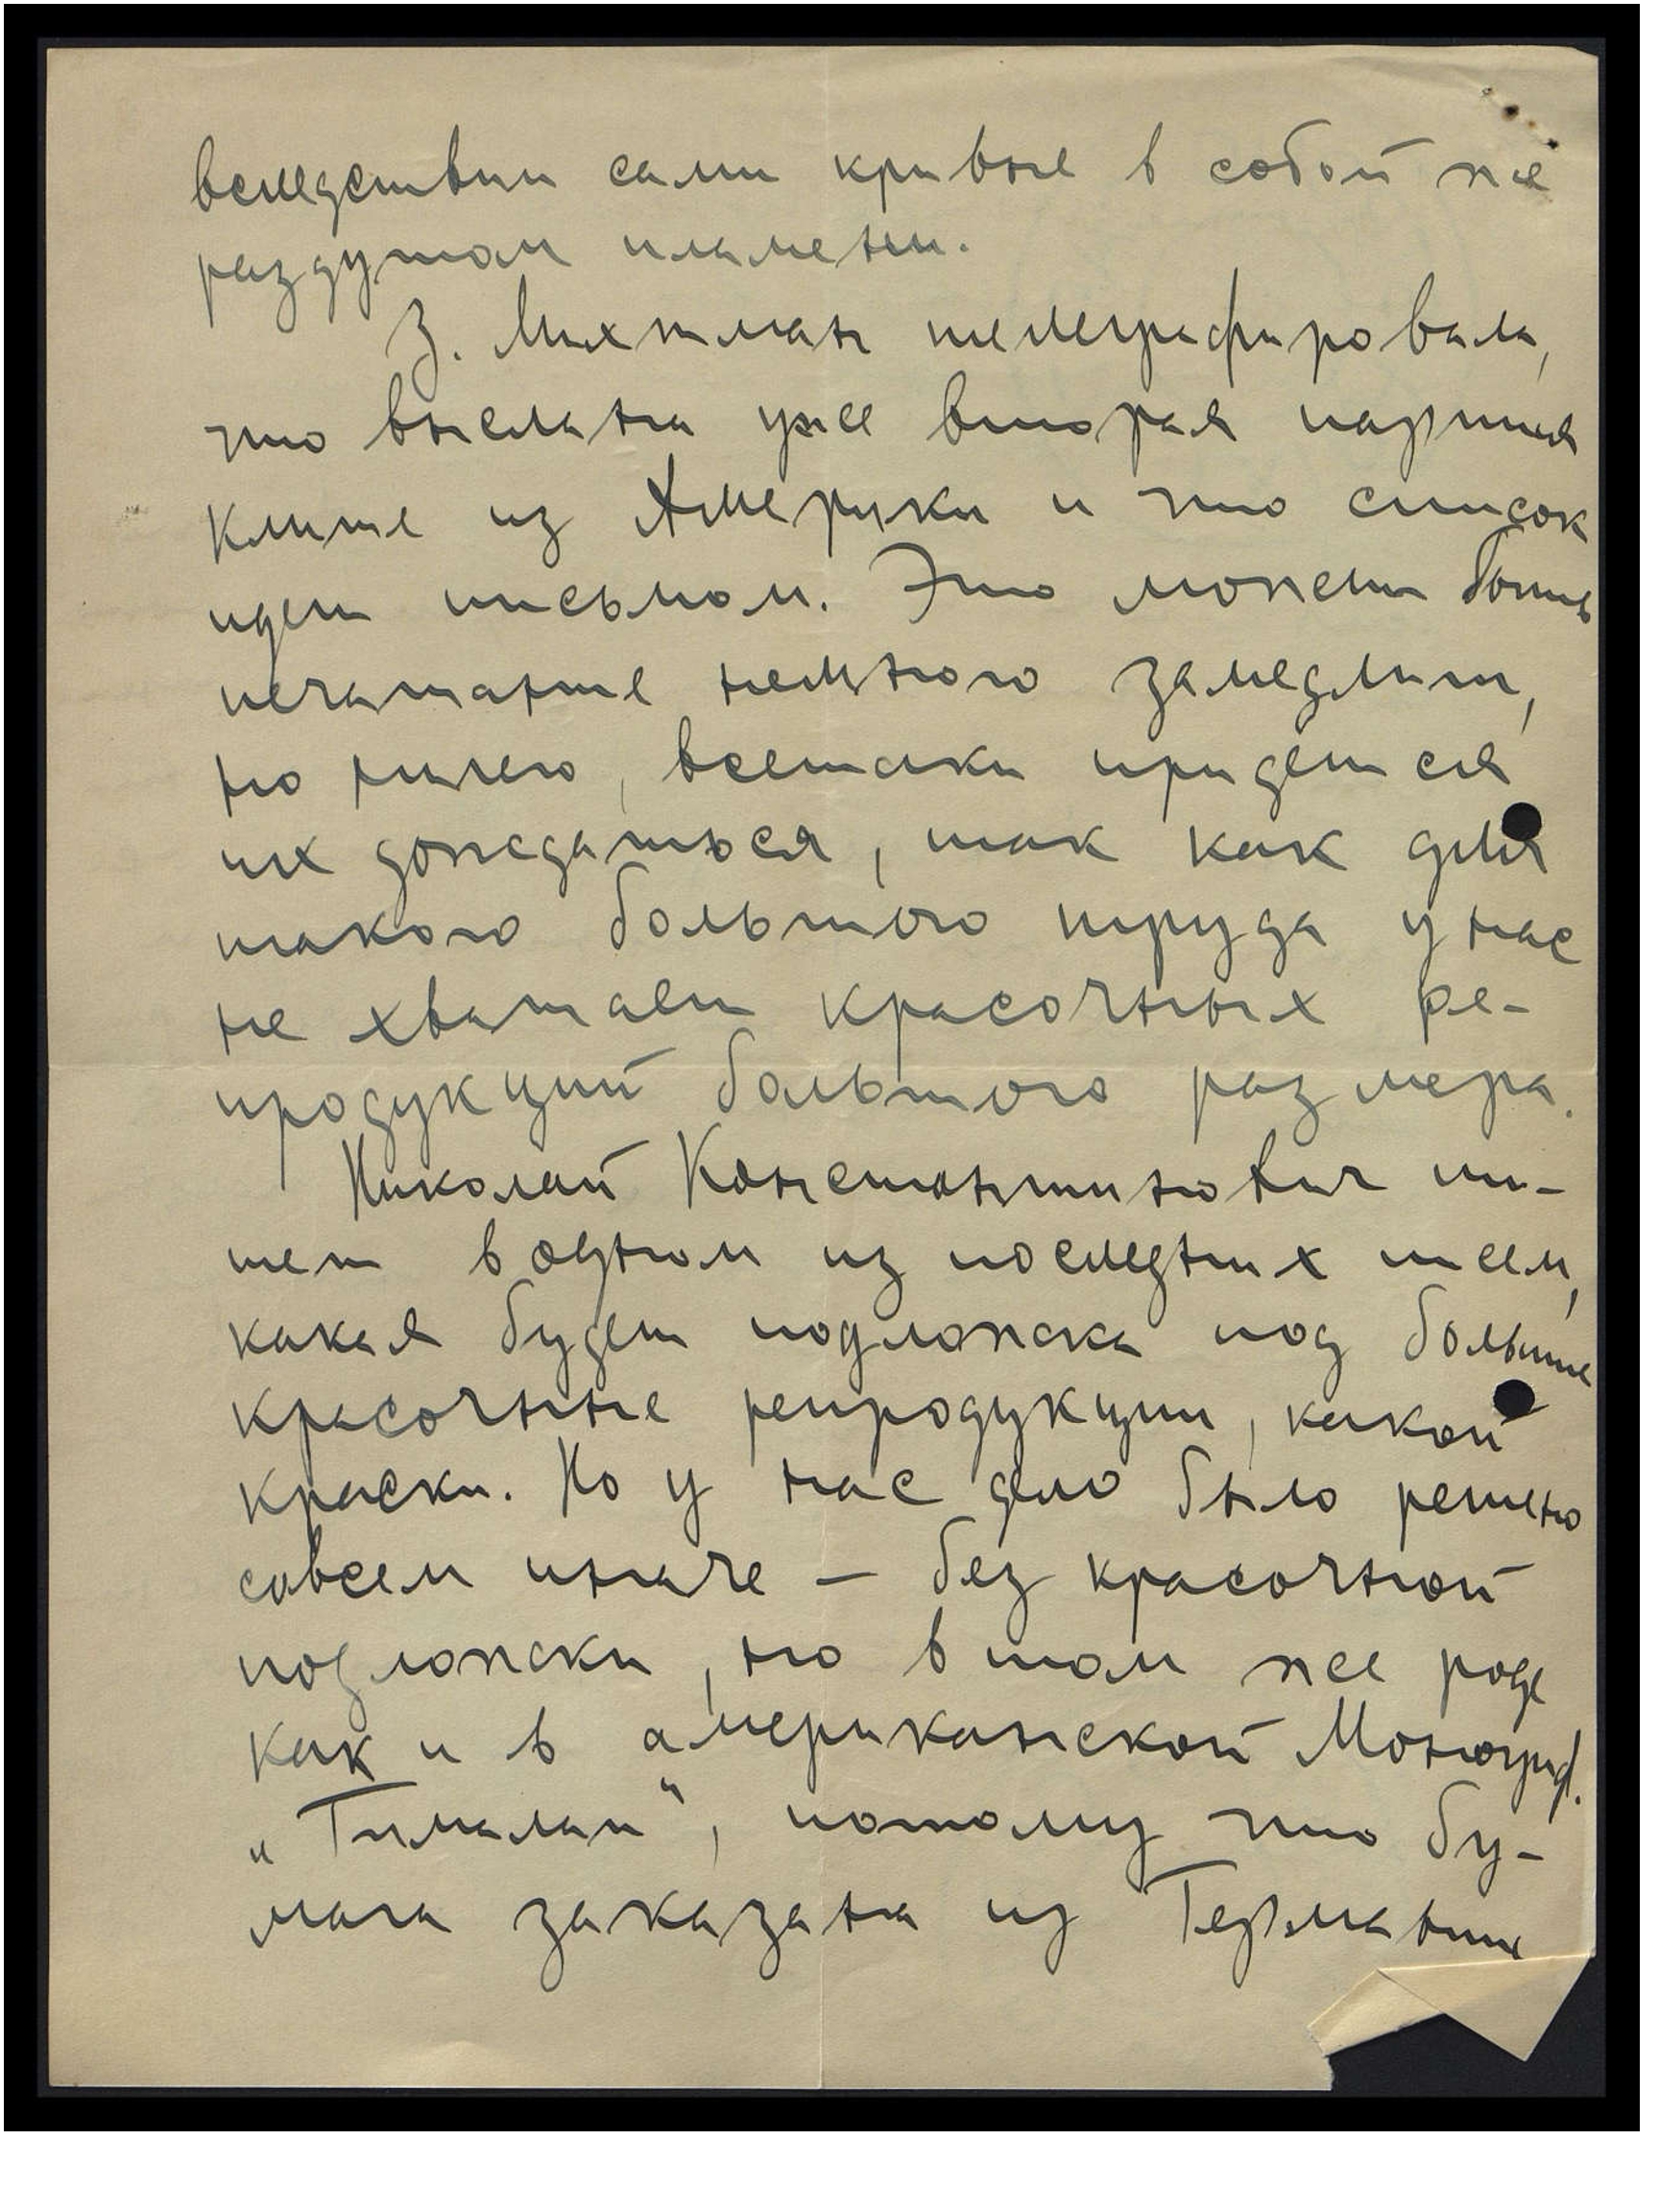 вследствии сами кривые в собой же
раздутом пламени.
З. Лихтман телеграфировала,
что выслана уже вторая партия
клише из Америки и что список
идет письмом. Это может быть
печатание немного замедлит,
но ничего, всетаки придется
их дождаться, так как для
такого большого труда у нас
не хватает красочных ре-
продукций большого размера.
Николай Константинович пи-
шет в одном из последних писем,
какая будет подложка под большие
красочные репродукции, какой
краски. Но у нас дело было решено
совсем иначе – без красочной
подложки, но в том же роде
как и в американской Монограф.
„Гималаи“, потому что бу-
мага заказана из Германии